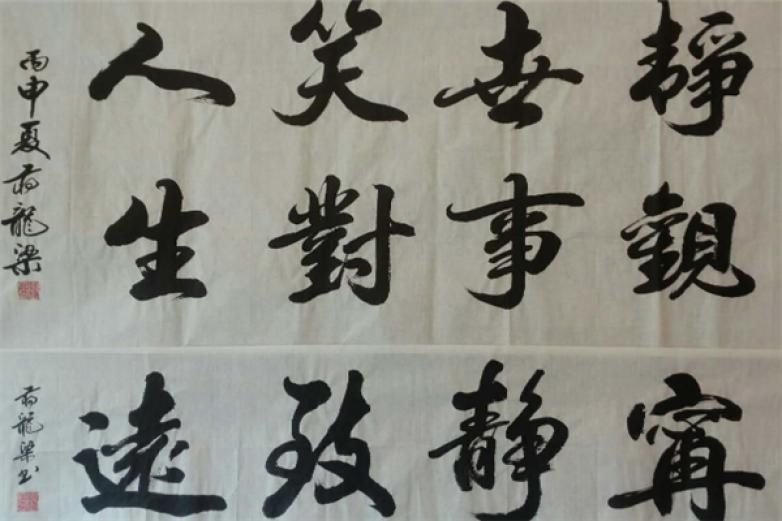 靜觀
世事
笑對
人生
丙申夏蔣龍梁
寧靜致遠
蔣龍梁书